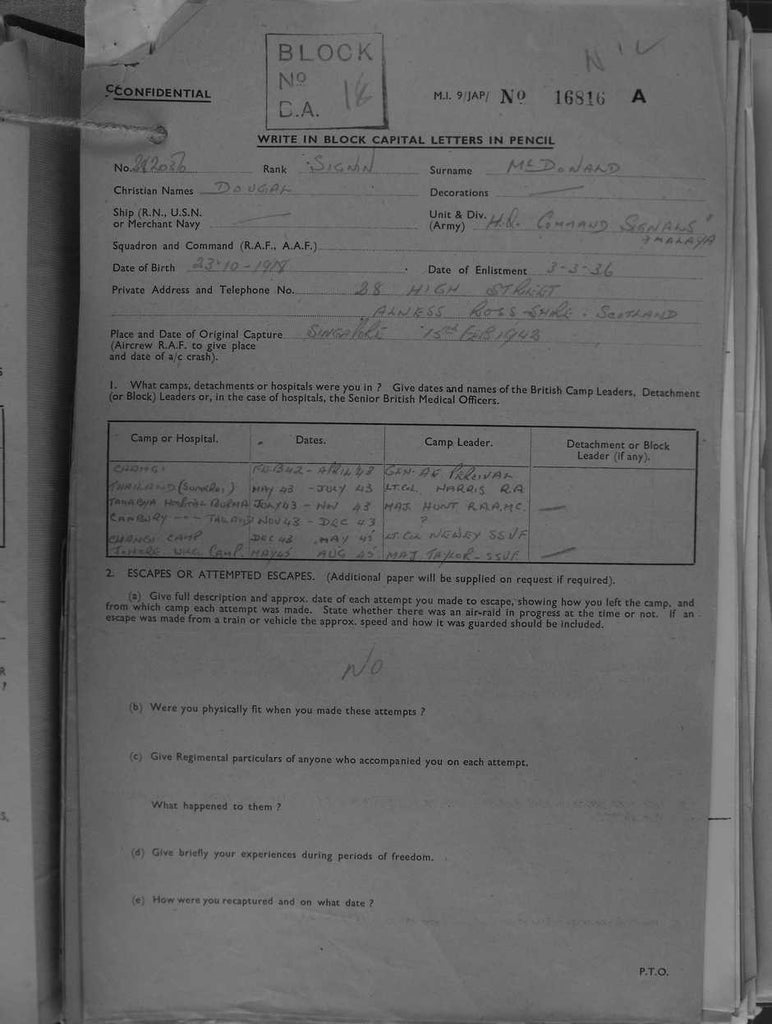 BLOCK
Nº
C.A. 18
CONFIDENTIAL
M.I. 9/JAP/ Nº 16816 A
WRITE IN BLOCK CAPITAL LETTERS IN PENCIL
No. Rank SIGNN Surname McDONALD
Christian Names DOUGAL Decorations —
Ship (R.N., U.S.N. or Merchant Navy —
Unit & Div. (Army) H.Q. COMMAND SIGNALS MALAYA
Squadron and Command (R.A.F., A.A.F.)
Date of Birth 23-10-1918 Date of Enlistment 3-3-36
Private Address and Telephone No. 28 HIGH STREET
ALNESS ROSS-SHIRE - SCOTLAND
Place and Date of Original Capture SINGAPORE 15th FEB 1942
(Aircrew R.A.F. to give place
and date of a/c crash).
1. What camps, detachments or hospitals were you in ? Give dates and names of the British Camp Leaders, Detachment
(or Block) Leaders or, in the case of hospitals, the Senior British Medical Officers.
Camp or Hospital. Dates. Camp Leader. Detachment or Block Leader (if any).
CHANGI FEB 42 - APRIL 43 GEN. A.E. PERCIVAL
THAILAND MAY 43 - JULY 43 LT. COL. HARRIS R.A
HOSPITAL BURMA JULY 43 - NOV 43 MAJ. HUNT R.A.A.M.C. —
NOV 43 - DEC 43 ?
CHANGI CAMP DEC 43 MAY 45 LT COL NEWEY SSVF
JOHORE CAMP. MAY 45 AUG 45 MAJ. TAYLOR - SSVF —
2. ESCAPES OR ATTEMPTED ESCAPES. (Additional paper will be supplied on request if required).
(a) Give full description and approx. date of each attempt you made to escape, showing how you left the camp, and
from which camp each attempt was made. State whether there was an air-raid in progress at the time or not. If an
escape was made from a train or vehicle the approx. speed and how it was guarded should be included.
NO
(b) Were you physically fit when you made these attempts ?
(c) Give Regimental particulars of anyone who accompanied you on each attempt.
What happened to them ?
(d) Give briefly your experiences during periods of freedom.
(e) How were you recaptured and on what date ?
P.T.O.